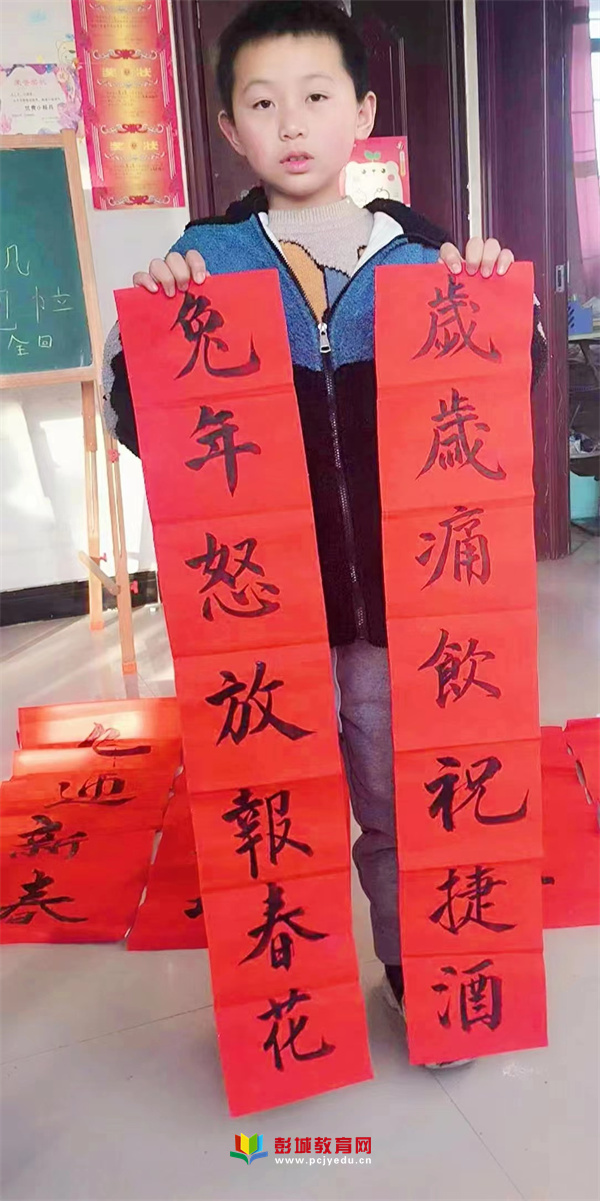 歲歲痛飲祝捷酒
兔年怒放報春花
迎新春
几
彭城教育网
www.pcjyedu.cn